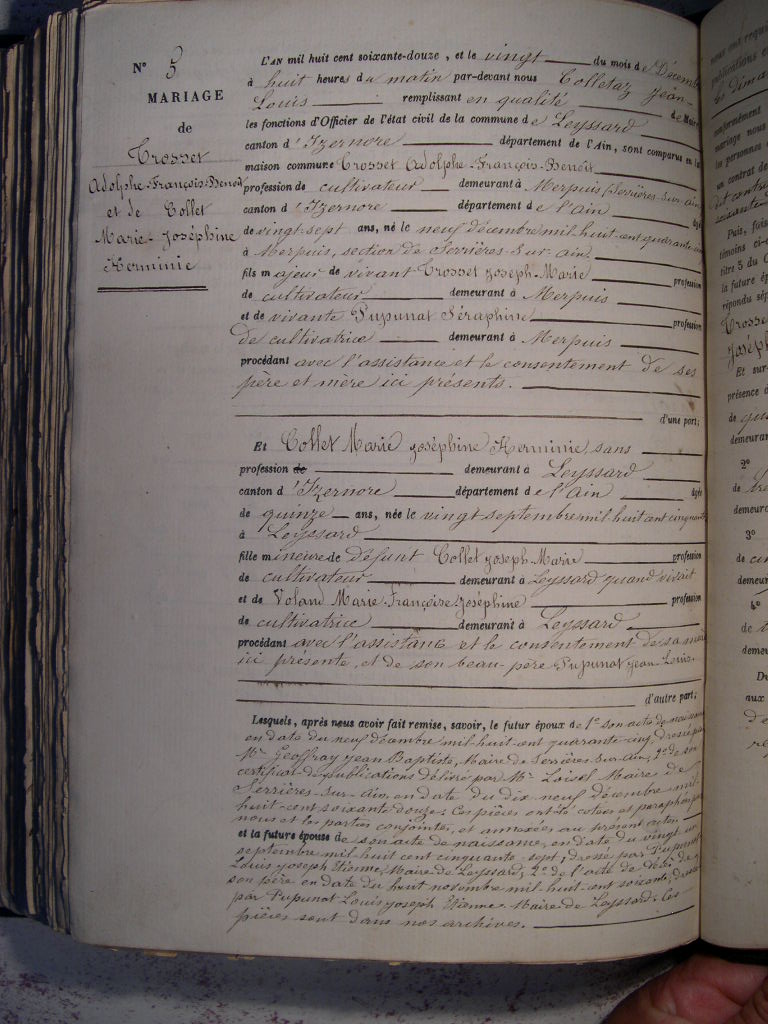 N° 5
MARIAGE
de
Trosset
Adolphe-François-Benoît
et de Collet
Marie-Joséphine
Herminie
L'AN mil huit cent soixante-douze, et le vingt du mois de Décembre
à huit heures du matin par-devant nous Colletaz Jean-
Louis remplissant en qualité de Maire
les fonctions d'Officier de l'état civil de la commune de Leyssard
canton d'Izernore département de l'Ain, sont comparus en la
maison commune Trosset Adolphe-François-Benoît
profession de cultivateur demeurant à Merpuis (Serrières-sur-Ain
canton d'Izernore département de l'Ain âgé
de vingt-sept ans, né le neuf décembre mil-huit-cent quarante-
à Merpuis, section de Serrières-sur-Ain.
fils majeur de vivant Trosset Joseph-Marie profession
de cultivateur demeurant à Merpuis
et de vivante Pupunat Séraphine profession
de cultivatrice demeurant à Merpuis
procédant avec l'assistance et le consentement de ses
père et mère ici présents.
d'une part;
Et Collet Marie Joséphine Herminie, sans
profession de demeurant à Leyssard
canton d'Izernore département de l'Ain âgée
de quinze ans, née le vingt septembre mil huit cent cinquante
à Leyssard
fille mineure de défunt Collet Joseph-Marie profession
de cultivateur demeurant à Leyssard quand vivait
et de Voland Marie-Françoise-Joséphine profession
de cultivatrice demeurant à Leyssard
procédant avec l'assistance et le consentement de sa mère
ici présente, et de son beau-père Pupunat Jean-Louis.
d'autre part;
Lesquels, après nous avoir fait remise, savoir, le futur époux de 1° son acte de naissance
en date du neuf décembre mil-huit-cent quarante-cinq, dressé par
Mr Geoffray Jean Baptiste, Maire de Serrières-sur-Ain, 2° de son
certificat de publications délivré par Mr Maire de
Serrières-sur-Ain, en date du dix neuf décembre mil
huit-cent soixante douze; Ces pièces ont été cotées et paraphées par
nous et les parties conjointes, et annexées au présent acte.
et la future épouse de son acte de naissance, en date du vingt un
septembre mil huit cent cinquante-sept, dressé par Pupunat
Louis Joseph Etienne, Maire de Leyssard; 2° de l'acte de décès de
son père en date du huit novembre mil-huit-cent soixante, dressé
par Pupunat Louis Joseph Etienne Maire de Leyssard; Ces
pièces sont dans nos archives.